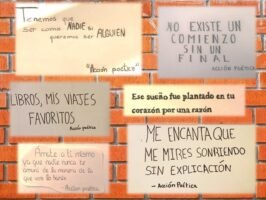 Tenemos que
ser como NADIE si
queremos ser ALGUIEN
"Acción poética"
NO EXISTE UN
COMIENZO
SIN UN
FINAL
ACCIÓN POÉTICA
LIBROS, MIS VIAJES
FAVORITOS
Acción poética
Ese sueño fue plantado en tu
corazón por una razón
Ámate a ti mismo
ya que nadie nunca te
amará de la manera de la
que vos lo harás
Acción poética
ME ENCANTA QUE
ME MIRES SONRIENDO
SIN EXPLICACIÓN
- Acción Poética